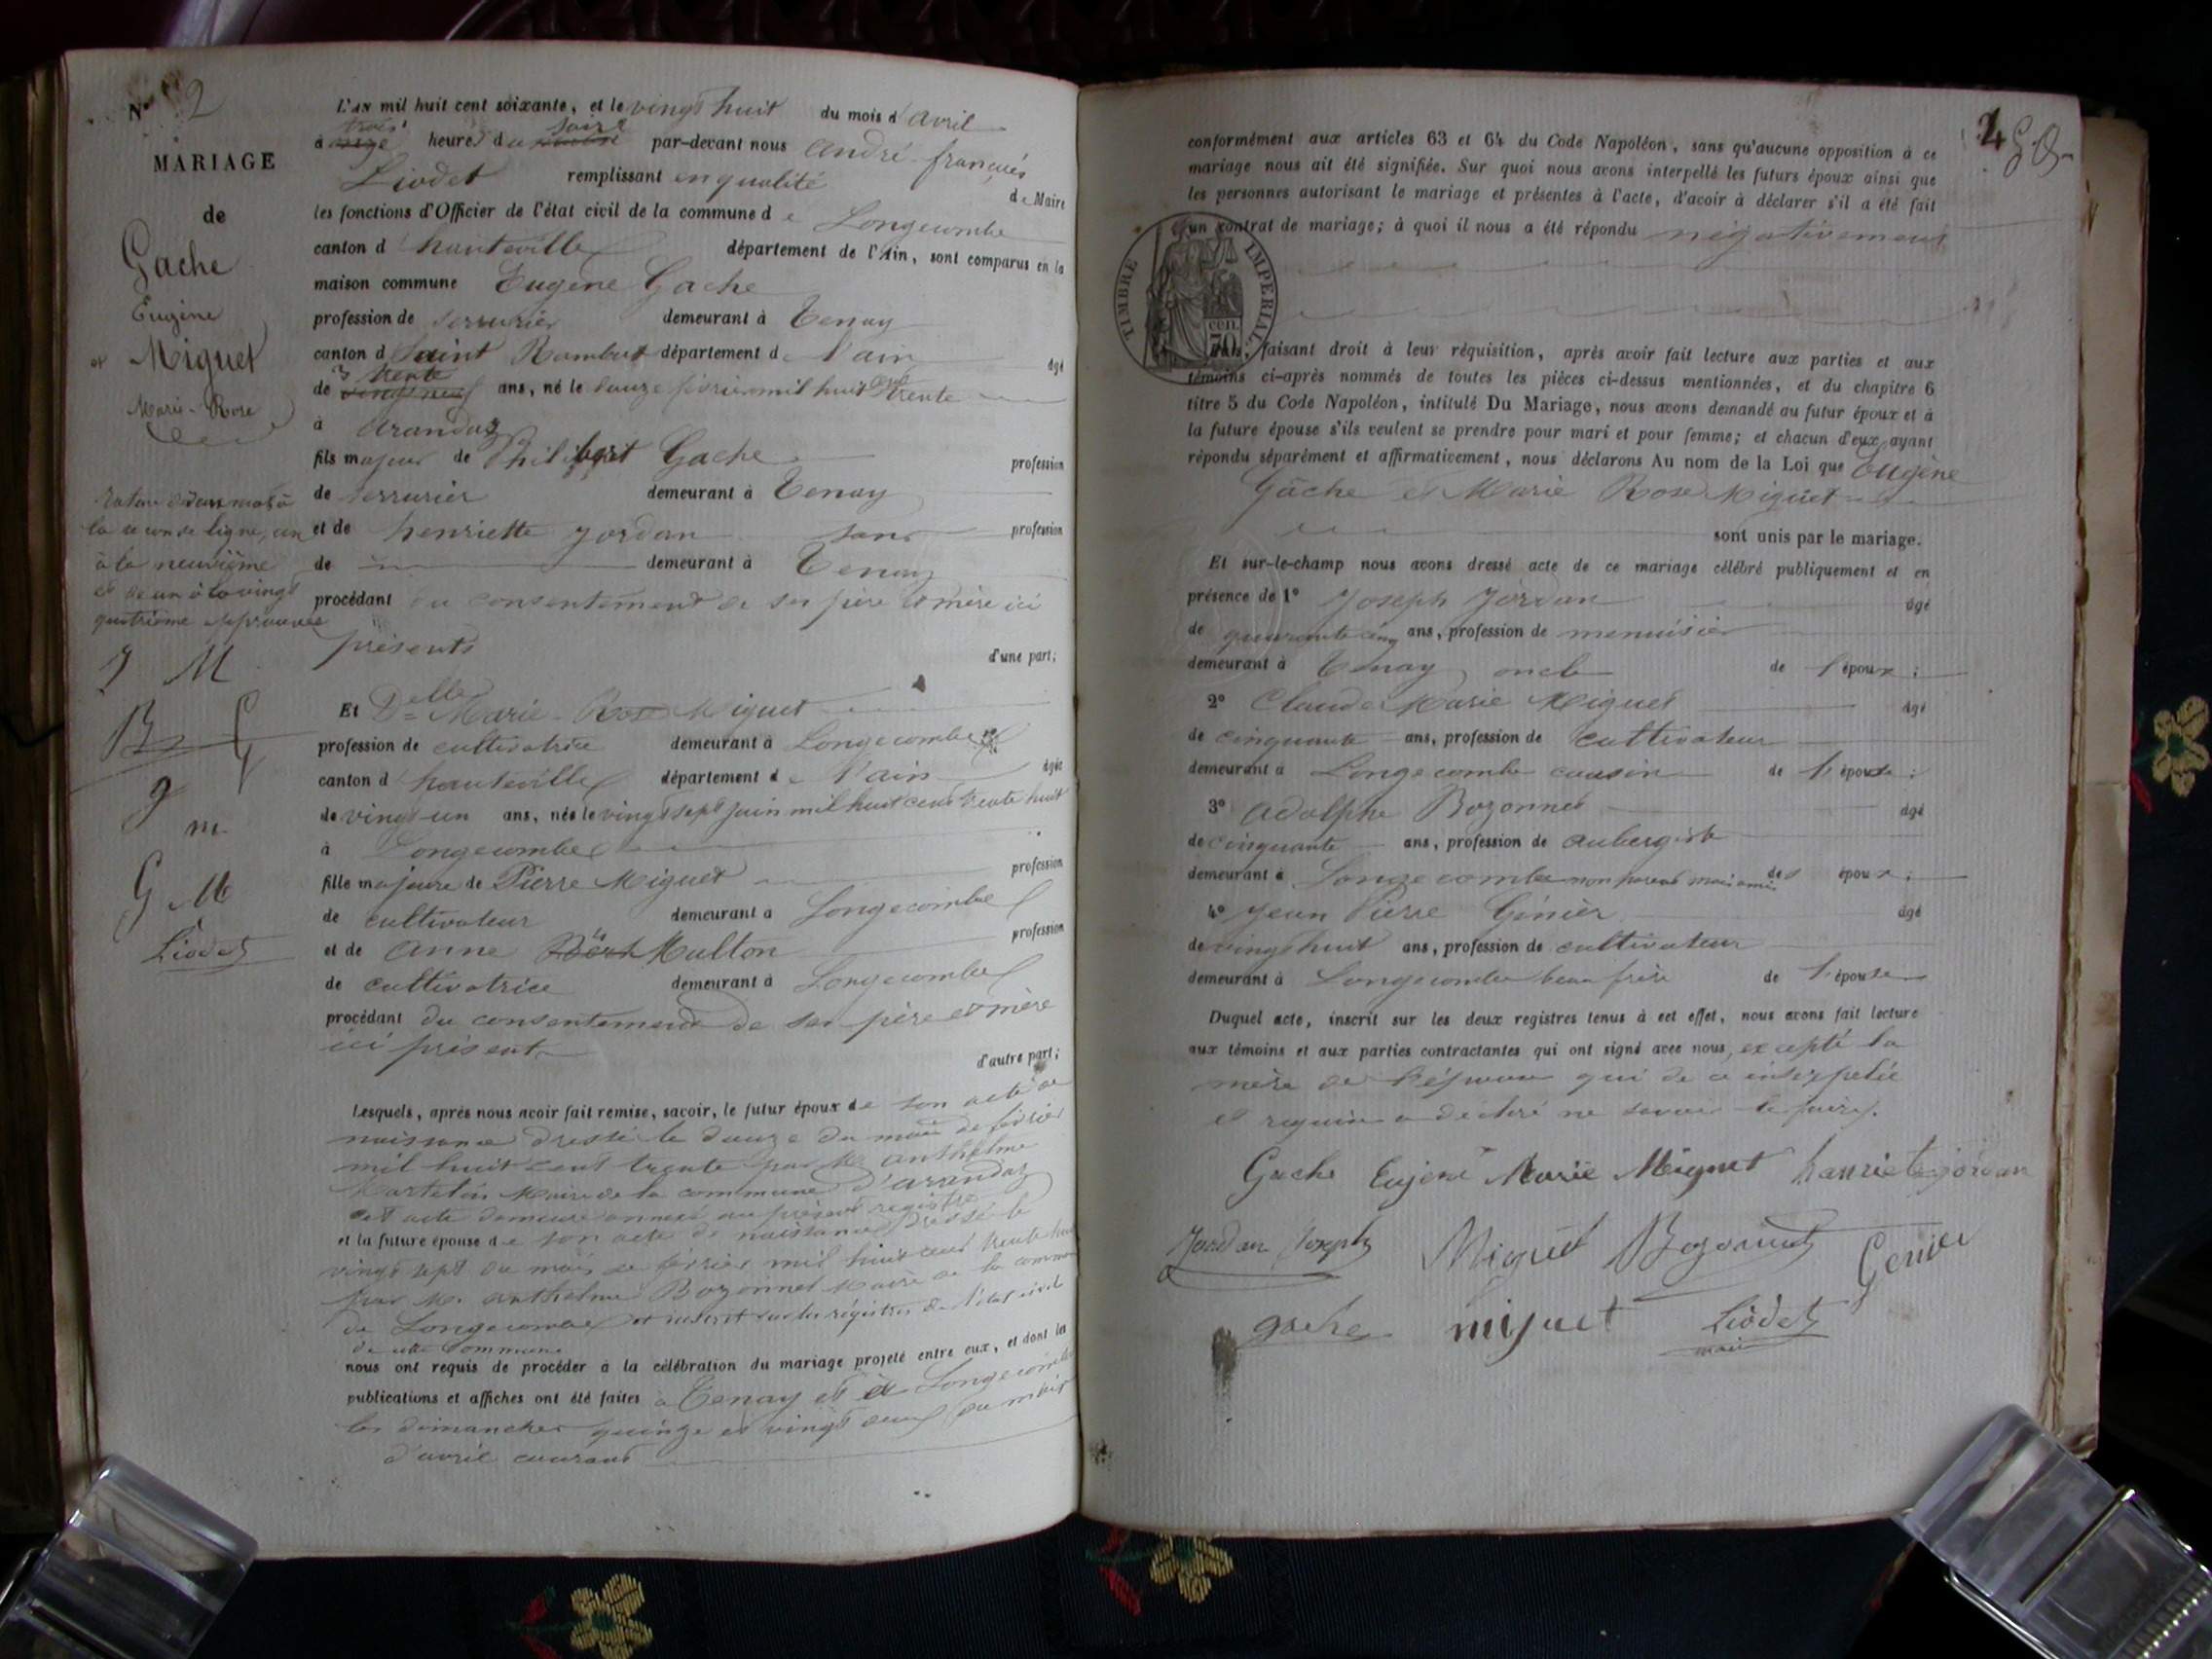 N° 2
MARIAGE
de
Gache
Eugène
et Miguet
Marie-Rose
Rature de deux mots à
la seconde ligne, un
à la neuvième
et de un à la vingt
quatrième approuvée
J M
B G
g
m
G M
Liodet
L'AN mil huit cent soixante, et le vingt huit du mois d'avril
à trois heures du soire par-devant nous André françois
Liodet remplissant en qualité de Maire
les fonctions d'Officier de l'état civil de la commune de Longecombe
canton d'hauteville département de l'Ain, sont comparus en la
maison commune Eugène Gache
profession de serrurier demeurant à Tenay
canton d Saint Rambert département de l'ain âgé
de trente ans, né le douze février mil huit cent trente
à Arandaz
fils majeur de Philibert Gache profession
de serrurier demeurant à Tenay
et de henriette Jordan sans profession
de demeurant à Tenay
procédant du consentement de ses père et mère ici
présents
d'une part;
Et Delle Marie-Rose Miguet
profession de cultivatrice demeurant à Longecombe
canton d'hauteville département de l'ain âgée
de vingt-un ans, née le vingt sept juin mil huit cent trente huit
à Longecombe
fille majeure de Pierre Miguet profession
de cultivateur demeurant à Longecombe
et de Anne Multon profession
de cultivatrice demeurant à Longecombe
procédant du consentement de ses père et mère
ici présent
d'autre part;
Lesquels, après nous avoir fait remise, savoir, le futur époux de son acte de
naissance dressé le douze du mois de février
mil huit cent trente par Mr anthelme
Martelin Maire de la commune d'arandaz
cet acte demeure annexé au présent registre
et la future épouse de son acte de naissance dressé le
vingt sept du mois de février mil huit cent trente huit
par Mr anthelme Bozonnet Maire de la commune
de Longecombe et inscrit sur les régistres de l'état civil
de cette commune
nous ont requis de procéder à la célébration du mariage projeté entre eux, et dont les
publications et affiches ont été faites à Tenay et à Longecombe
les dimanches quinze et vingt deux du mois
d'avril courant
conformément aux articles 63 et 64 du Code Napoléon, sans qu'aucune opposition à ce
mariage nous ait été signifiée. Sur quoi nous avons interpellé les futurs époux ainsi que
les personnes autorisant le mariage et présentes à l'acte, d'avoir à déclarer s'il a été fait
un contrat de mariage; à quoi il nous a été répondu négativement
TIMBRE IMPERIAL
cen.
faisant droit à leur réquisition, après avoir fait lecture aux parties et aux
témoins ci-après nommés de toutes les pièces ci-dessus mentionnées, et du chapitre 6
titre 5 du Code Napoléon, intitulé Du Mariage, nous avons demandé au futur époux et à
la future épouse s'ils veulent se prendre pour mari et pour femme; et chacun d'eux ayant
répondu séparément et affirmativement, nous déclarons Au nom de la Loi que Eugène
Gâche et Marie Rose Miguet
sont unis par le mariage.
Et sur-le-champ nous avons dressé acte de ce mariage célébré publiquement et en
présence de 1° Joseph Jordan âgé
de quarante cinq ans, profession de menuisier
demeurant à Tenay oncle de l'époux;
2° Claude Marie Miguet âgé
de cinquante ans, profession de cultivateur
demeurant à Longecombe cousin de l'épouse;
3° Adolphe Bozonnet âgé
de cinquante ans, profession de aubergiste
demeurant à Longecombe non parent mais amis des époux;
4° Jean Pierre Génier âgé
de vingt huit ans, profession de cultivateur
demeurant à Longecombe beau frère de l'épouse
Duquel acte, inscrit sur les deux registres tenus à cet effet, nous avons fait lecture
aux témoins et aux parties contractantes qui ont signé avec nous, excepté la
mère de l'épouse qui de ce interpelée
et requise a déclaré ne savoir le faire.
Gache Eujene Marie Meignet hanriete jordan
Jordan Joseph Miguet Bozonnet Genier
gache miguet Liodet
maire